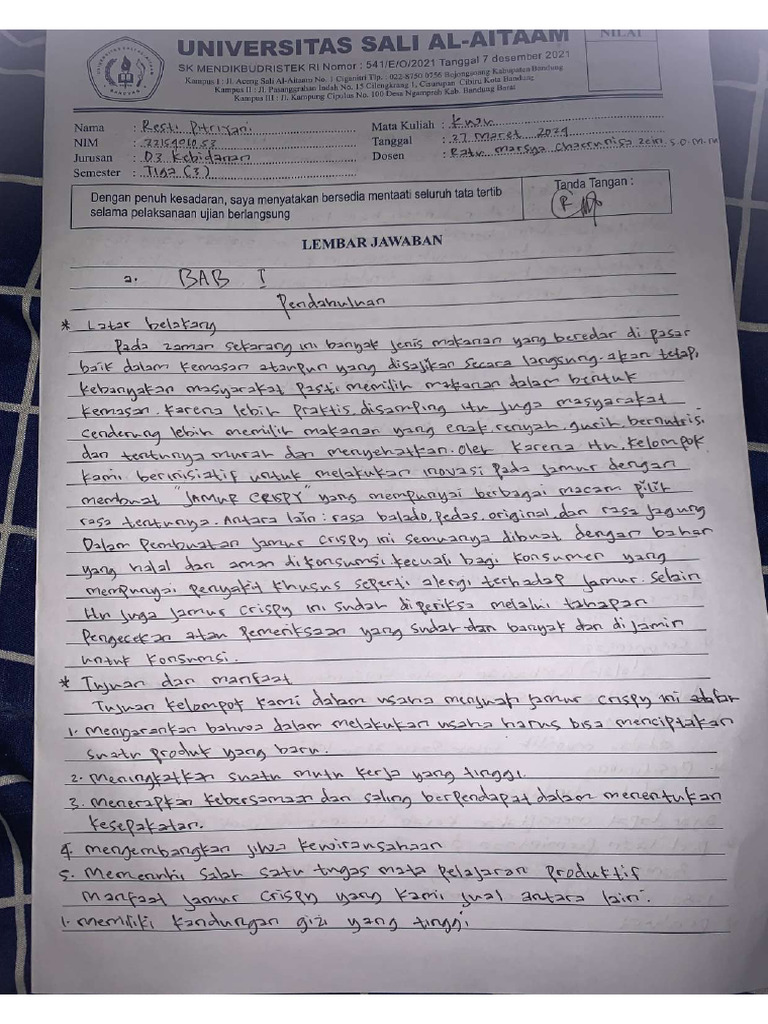 UNIVERSITAS SALI AL-AITAAM
NILAI
SK MENDIKBUDRISTEK RI Nomor : 541/E/O/2021 Tanggal 7 desember 2021
Kampus I : Jl. Aceng Sali Al-Aitaam No. 1 Ciganitri Tlp. : 022-8750 0756 Bojongsoang Kabupaten Bandung
Kampus II : Jl. Pasanggrahan Indah No. 15 Cilengkrang 1, Cisurupan Cibiru Kota Bandung
Kampus III : Jl. Kampung Cipulus No. 100 Desa Ngamprah Kab. Bandung Barat
Nama : Resti Pitriyani
Mata Kuliah : Kwu
NIM :
Tanggal : 27 Maret 2024
Jurusan : D3 Kebidanan
Dosen : Ratu marsya
Semester : Tiga (3)
Dengan penuh kesadaran, saya menyatakan bersedia mentaati seluruh tata tertib
selama pelaksanaan ujian berlangsung
Tanda Tangan :
LEMBAR JAWABAN
a. BAB I
Pendahuluan
* Latar belakang
Pada zaman sekarang ini banyak jenis makanan yang beredar di pasar
baik dalam kemasan ataupun yang disajikan secara langsung. akan tetapi
kebanyakan masyarakat pasti memilih makanan dalam bentuk
kemasan. karena lebih praktis. disamping itu juga masyarakat
senderung lebih memilih makanan yang enak, renyah, gurih, bernutrisi
dan tentunya murah dan menyehatkan. Oleh karena itu, kelompok
kami berinisiatif untuk melakukan inovasi pada jamur dengan
membuat "JAMUR CRISPY" yang mempunyai berbagai macam pilih
rasa tentunya. Antara lain : rasa balado, pedas, original, dan rasa jagung
Dalam pembuatan jamur crispy ini semuanya dibuat dengan bahan
yang halal dan aman dikonsumsi kecuali bagi konsumen yang
mempunyai penyakit khusus seperti alergi terhadap jamur. Selain
itu juga jamur crispy ini sudah diperiksa melalui tahapan
pengecekan atau pemeriksaan yang sudah dan banyak dan di jamin
untuk konsumsi.
* Tujuan dan manfaat
Tujuan kelompok kami dalam usaha menjual jamur crispy ini adalah
1. menyarankan bahwa dalam melakukan usaha harus bisa menciptakan
suatu produk yang baru.
2. meningkatkan suatu mutu kerja yang tinggi.
3. menerapkan kebersamaan dan saling berpendapat dalam menentukan
kesepakatan.
4. mengembangkan jiwa kewirausahaan
5. Memenuhi salah satu tugas mata pelajaran produktif
manfaat jamur crispy yang kami jual antara lain:
1. memiliki kandungan gizi yang tinggi